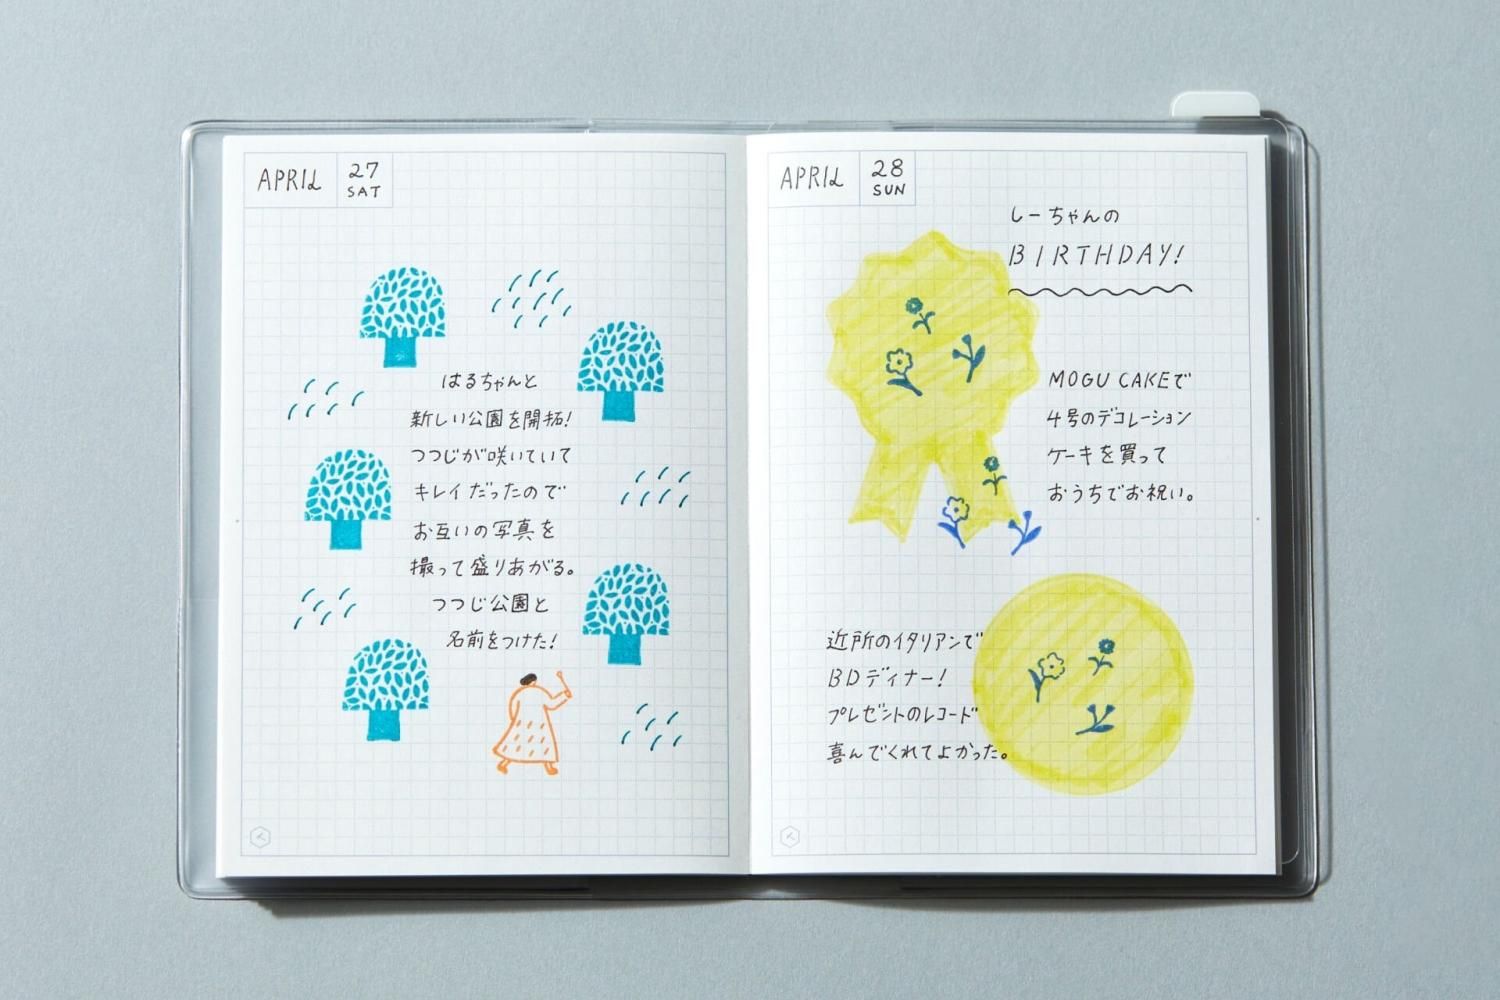 APRIL
27
SAT
はるちゃんと
新しい公園を開拓!
つつじが咲いていて
キレイだったので
お互いの写真を
撮って盛りあがる。
つつじ公園と
名前をつけた!
APRIL
28
SUN
しーちゃんの
BIRTHDAY!
MOGU CAKEで
4号のデコレーション
ケーキを買って
おうちでお祝い。
近所のイタリアンで
BDディナー!
プレゼントのレコード
喜んでくれてよかった。